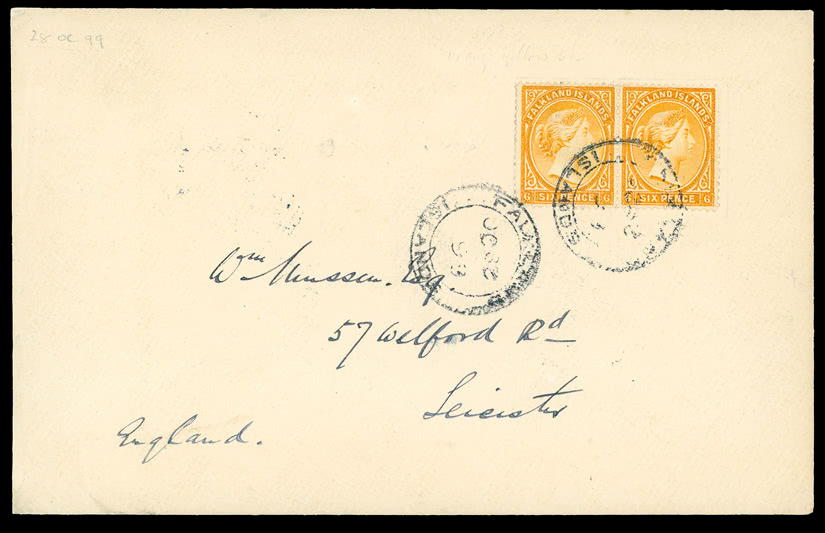 28 OC 99
FALKLAND ISLANDS
6 SIX PENCE 6
FALKLAND ISLANDS
6 SIX PENCE 6
FALKLAND ISLANDS
OC 28
99
ISLANDS
Wm Mussen. Esq
57 Welford Rd
Leicester
England.